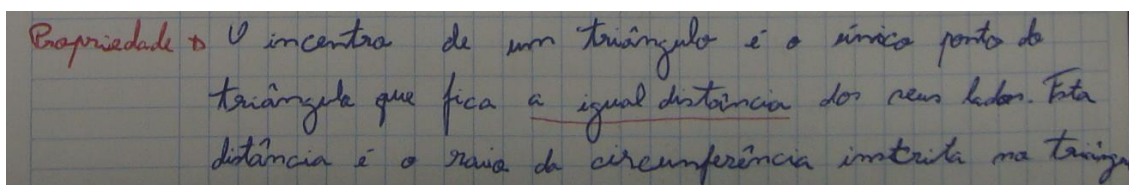 Propriedade → O incentro de um triângulo é o único ponto do
triângulo que fica a igual distância dos seus lados. Esta
distância é o raio da circunferência instrita no triâng